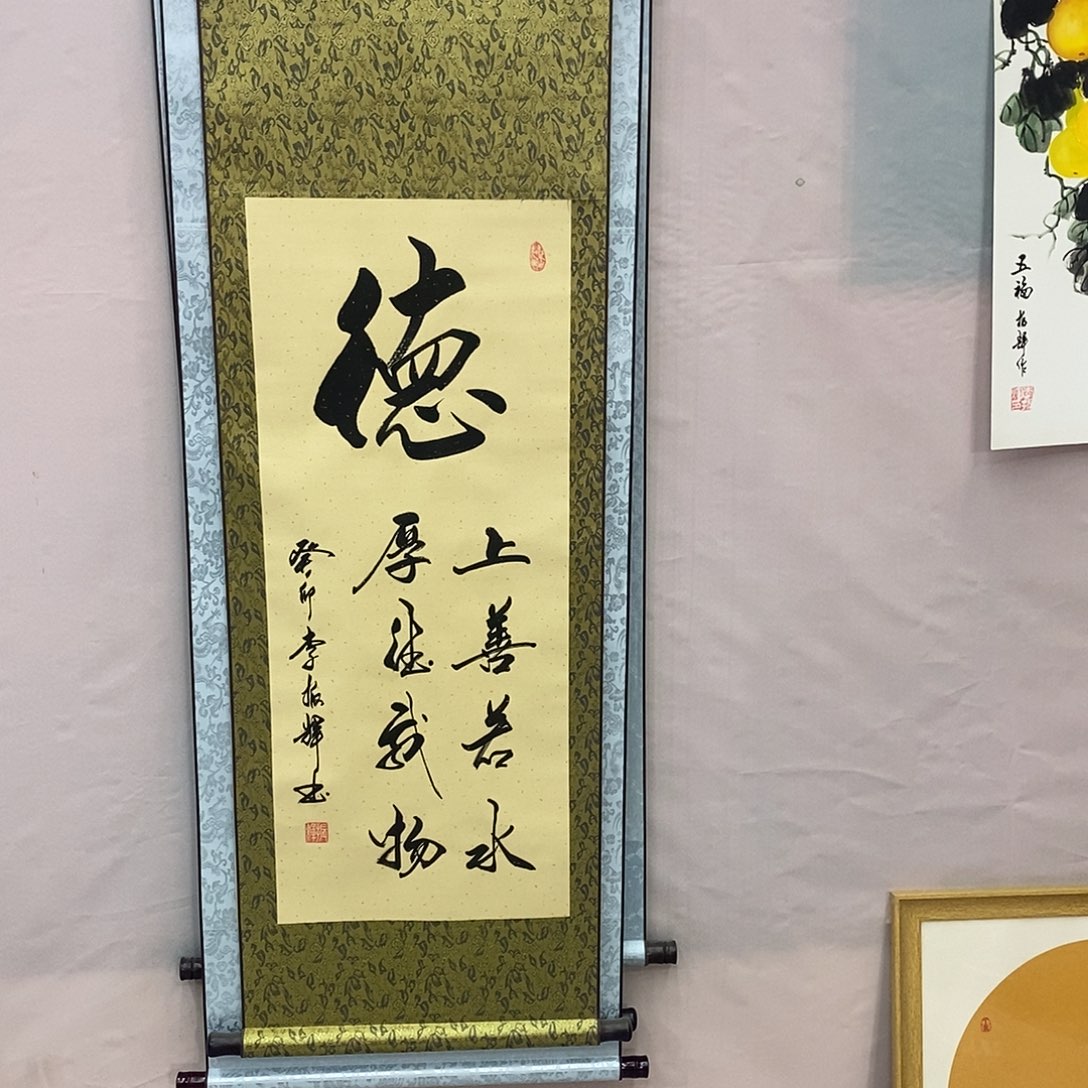 德
上善若水
厚德载物
癸卯李振辉书
五福振辉作